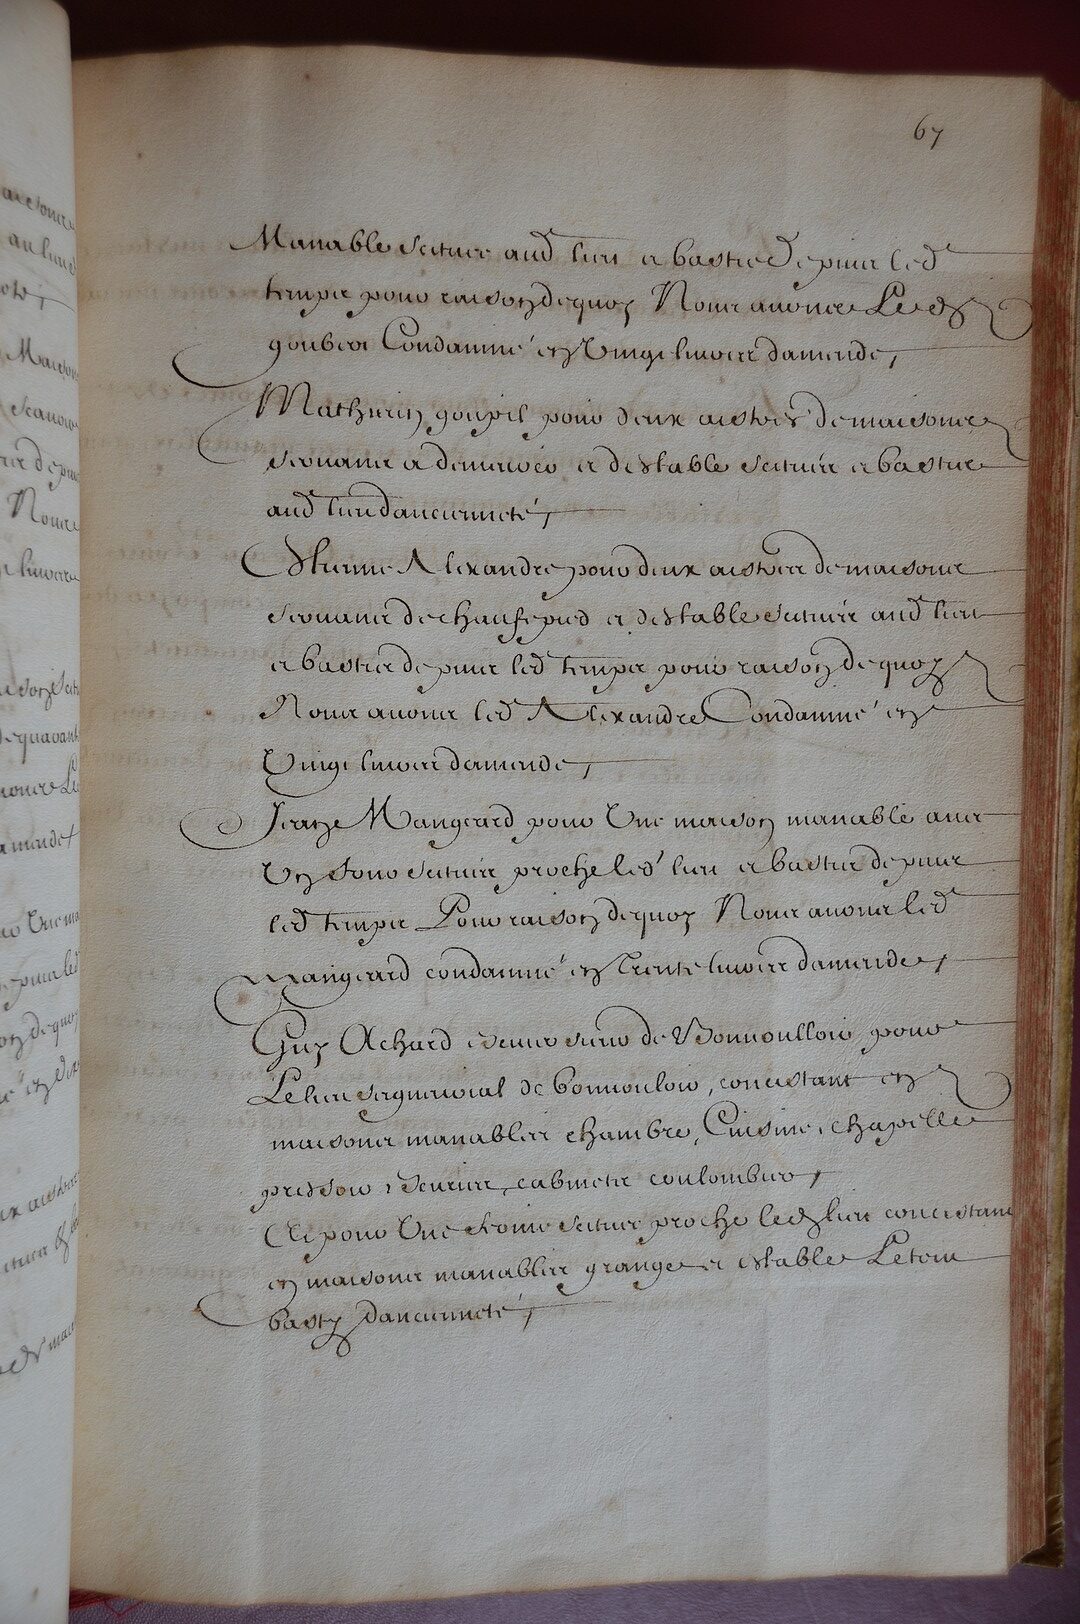 67
Manable scituee aud lieu et bastie depuis led
temps pour raison dequoy Nous auons Led
goubert Condamné en Vingt liures damende,
Mathurin goupil pour deux aistres de maisons
seruans a demeure et destable scituez et bastie
aud lieu danciennete,
Estienne Alexandre pour deux aistres de maisons
seruans de chaufepied et destable scituez aud lieu
et basties depuis led temps pour raison de quoy
Nous auons led Alexandre Condamné en
Vingt liures damende,
Jean Mangeard pour Vne maison manable auec
Vn four scituez proche led lieu et bastie depuis
led temps Pour raison dequoy Nous auons led
Mangeard condamné en Trente liures damende,
Guy Achard escuier sieur de Bonnoulloir pour
Le lieu seigneurial de bonnouloir, consistant en
maisons manables chambre, Cuisine, chapelle
pressoir, escuries, cabinets coulombier,
Et pour Vne ferme scituee proche led lieu consistant
en maisons manables grange et estable Le tout
basty danciennete,